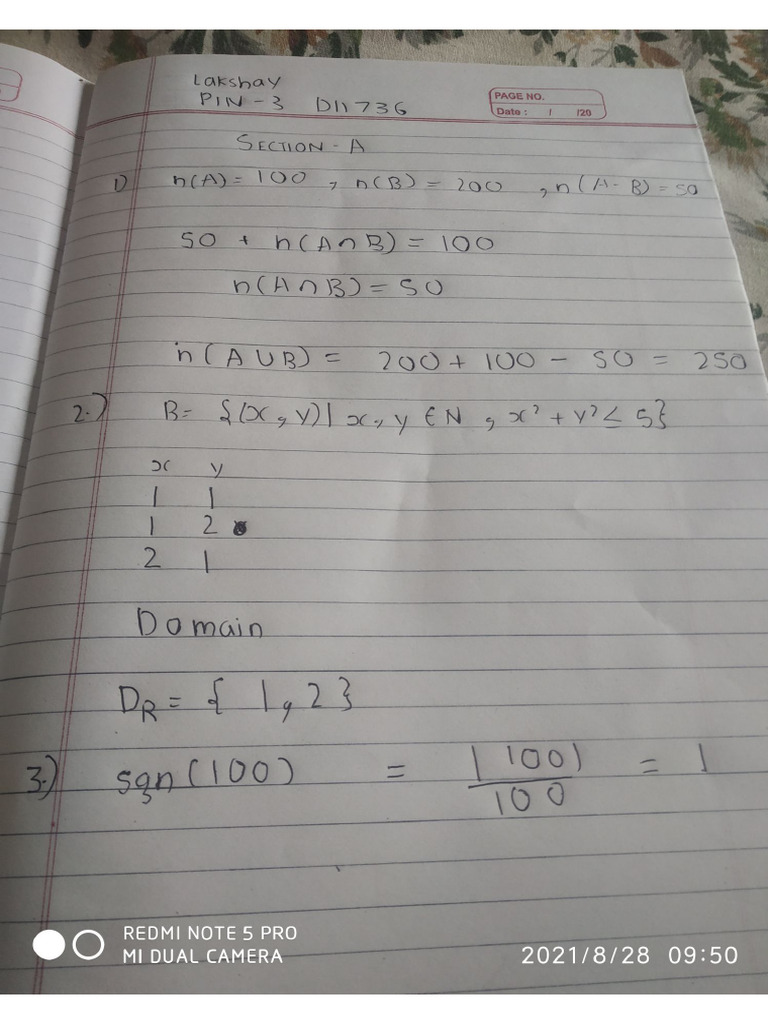 Lakshay
PIN - 3 D11736
PAGE NO.
Date : / /20
SECTION - A
1) n(A) = 100 , n(B) = 200 , n(A - B) = 50
50 + n(A∩B) = 100
n(A∩B) = 50
n(A∪B) = 200 + 100 - 50 = 250
2.) B = {(x, y) | x, y ∈ N , x² + y² ≤ 5}
x y
1 1
1 2
2 1
Domain
D_R = { 1, 2 }
3.) sgn(100) = |100|/100 = 1
REDMI NOTE 5 PRO
MI DUAL CAMERA
2021/8/28 09:50